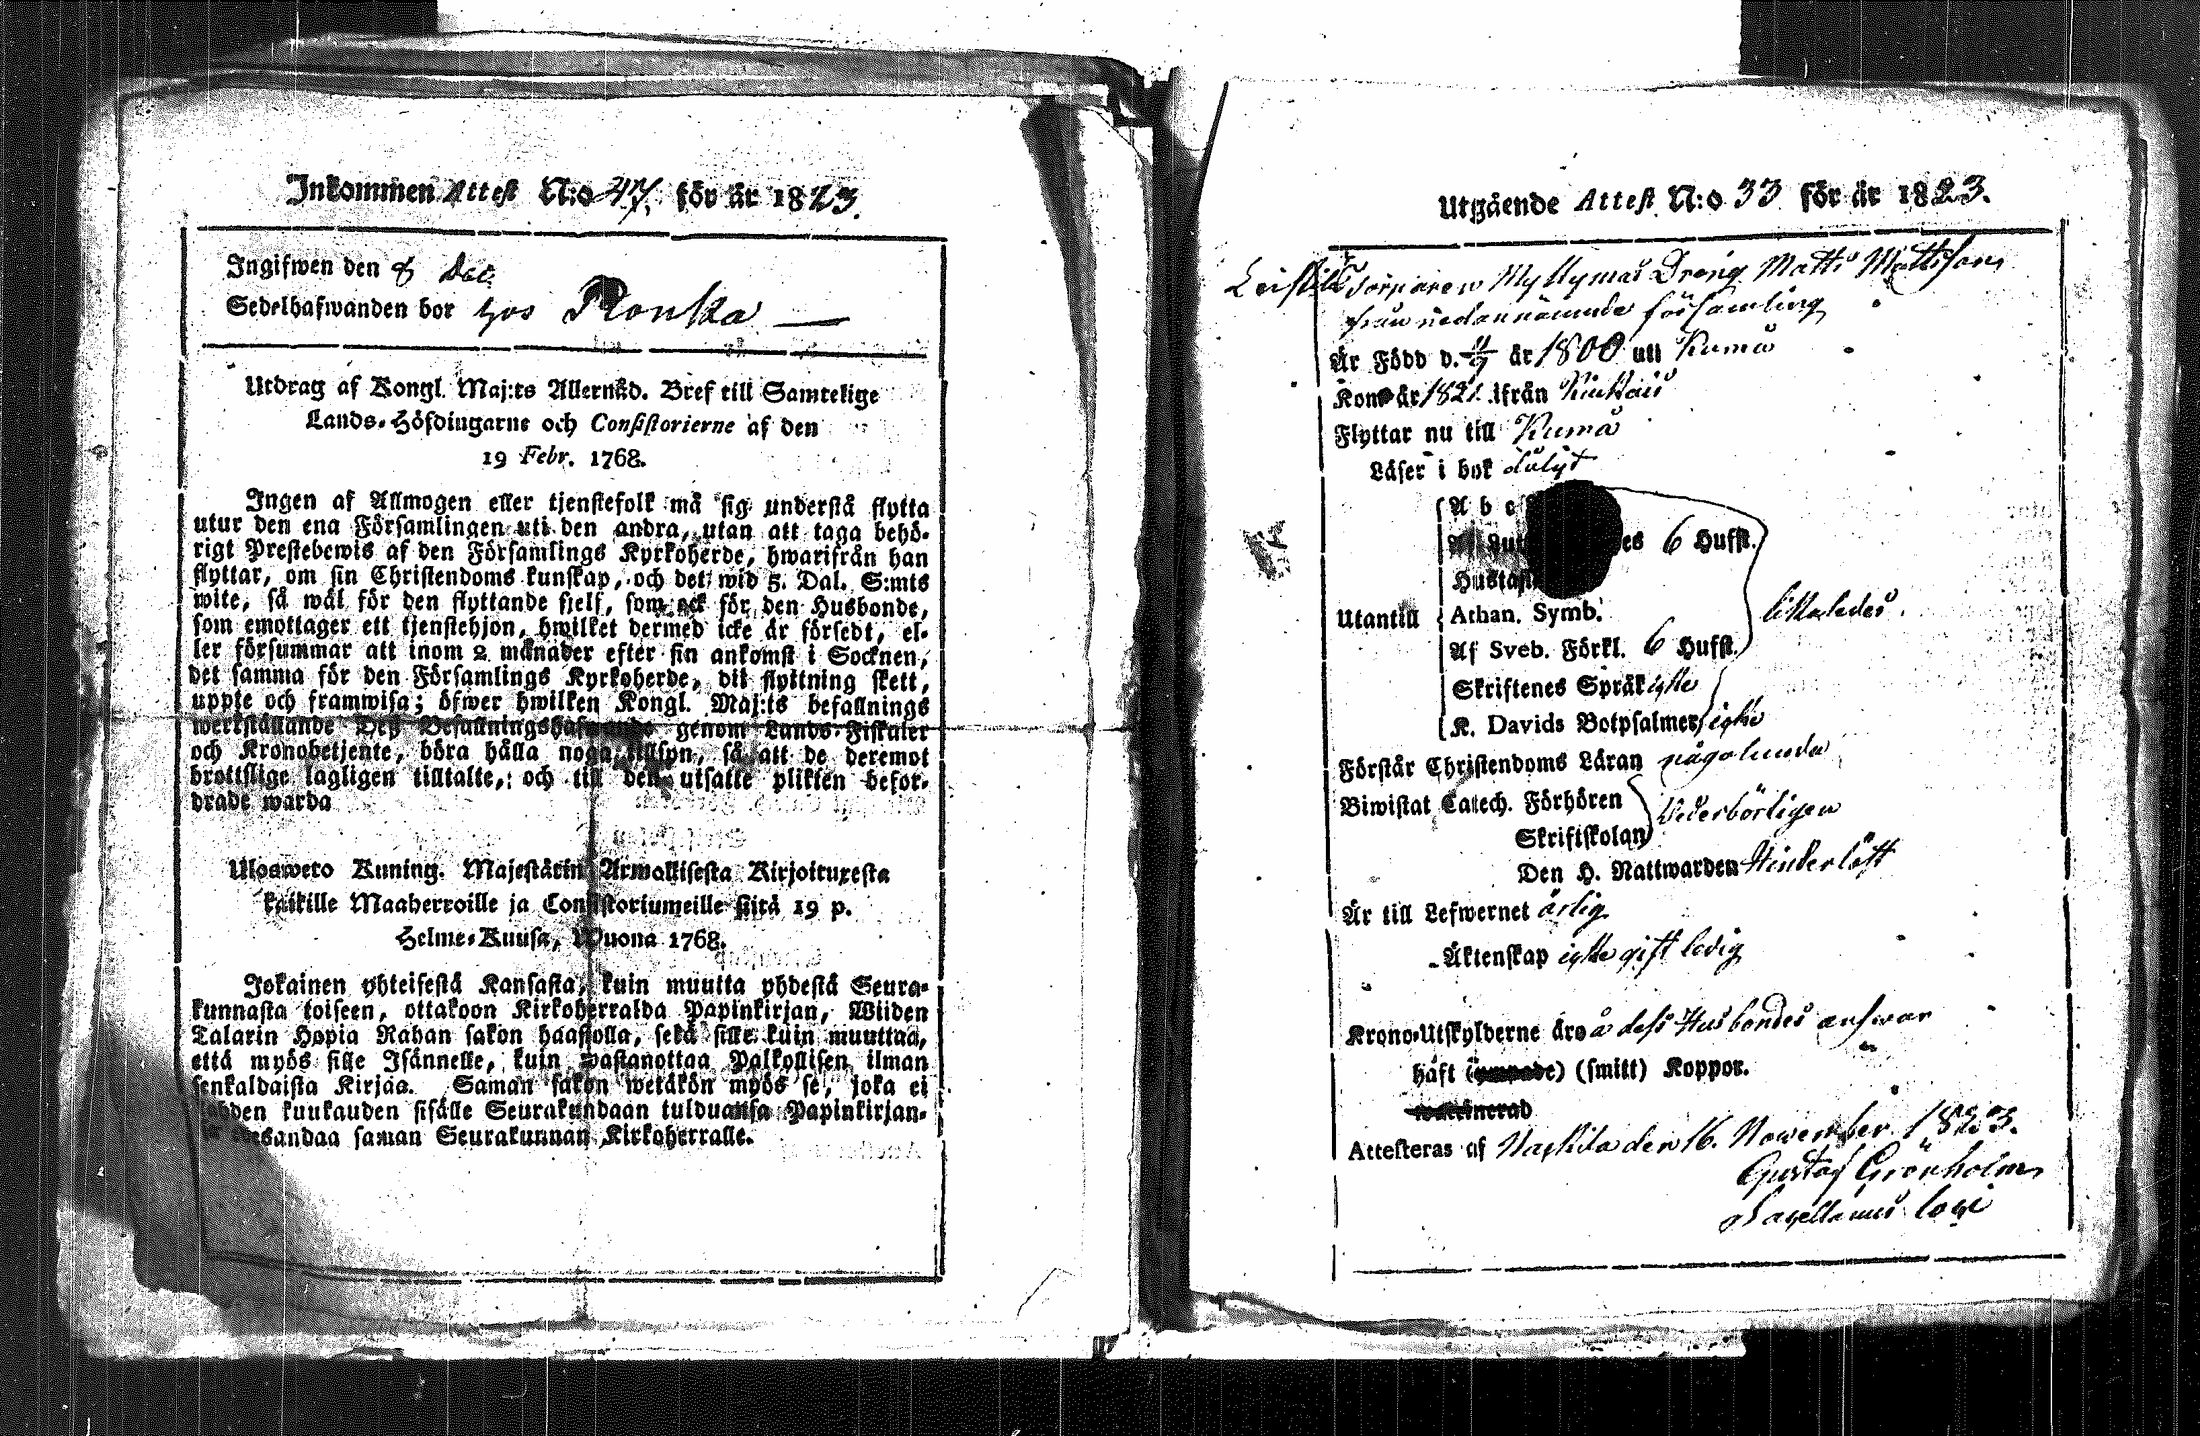 Inkommen Attest N:o 47. för år 1823.
Ingifwen den 8 Dec.
Sedelhafwanden bor hos Ronka
Utdrag af Kongl. Maj:ts Allernåd. Bref till Samtelige
Lands-Höfdingarne och Consistorierne af den
19 Febr. 1768.
Ingen af Allmogen eller tjenstefolk må sig understå flytta
utur den ena Församlingen uti den andra, utan att taga behö-
rigt Prestebewis af den Församlings Kyrkoherde, hwarifrån han
flyttar, om sin Christendoms kunskap, och det wid 5. Dal. S:mts
wite, så wäl för den flyttande sjelf, som ock för den Husbonde,
som emottager ett tjenstehjon, hwilket dermed icke är försedt, el-
ler försummar att inom 2 månader efter sin ankomst i Socknen,
det samma för den Församlings Kyrkoherde, dit flyttning skett,
uppte och framwisa; öfwer hwilken Kongl. Maj:ts befallnings
werkställande Deß Befallningshafwande genom Lands-Fiskaler
och Kronobetjente, böra hålla noga tillsyn, så att de deremot
brottslige lagligen tilltalte, och till den utsatte plikten befor-
drade warda
Uloswето Kuning. Majestätin Armollisesta Kirjoituxesta
kaikille Maaherroille ja Consistoriumeille siitä 19 p.
Helme-Kuusa, Wuona 1768.
Jokainen yhteisestä Kansasta, kuin muutta yhdestä Seura-
kunnasta toiseen, ottakoon Kirkoherralda Papinkirjan, Wiiden
Talarin Hopia Rahan sakon haastolla, sekä sille kuin muuttaa,
että myös sille Isännelle, kuin wastanottaa Palkollisen ilman
senkaldaista Kirjaa. Saman sakon wetäkön myös se, joka ei
kuukauden sisälle Seurakundaan tulduansa Papinkirjan-
saman Seurakunnan Kirkoherralle.
Utgående Attest N:o 33 för år 1823.
Leistilä Torparen Myllymäs Dräng Matts Mattsson
från nedannämnde församling
Är Född d. år 1800 uti Kumo
Kom år 1821 ifrån Kiukais
Flyttar nu till Kumo
Läser i bok dåligt
Utantill
Af es 6 Hufst.
Athan. Symb.
Af Sveb. Förkl. 6 Hufst.
likaledes.
Skriftenes Språk icke
K. Davids Botpsalmer icke
Förstår Christendoms Läran någolunda
Biwistat Catech. Förhören
Skriftskolan
Vederbörligen
Den H. Nattwarden Hinderlöst
Är till Lefwernet ärlig
Äktenskap icke gift ledig
Krono-Utskylderne äro å dess Husbondes answar
haft (smitt) Koppor.
Attesteras af Nakkila den 16. November 1823.
Gustaf Grönholm
Sacellanus loci